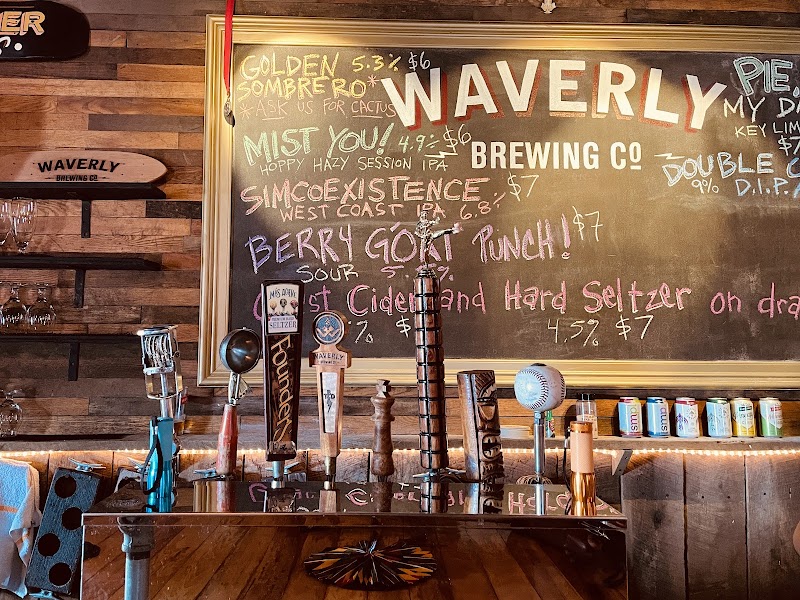 ER
GOLDEN 5.3% $6
SOMBRERO*
*ASK US FOR CACTUS
MIST YOU! 4.9% $6
HOPPY HAZY SESSION IPA
SIMCOEXISTENCE $7
WEST COAST IPA 6.8%
BERRY GOAT PUNCH! $7
SOUR 5. %
Cider and Hard Seltzer on dra
% $ 4.5% $7
WAVERLY
BREWING Co
PIE,
MY D
KEY LIM
$7
DOUBLE
9% D.I.P.
WAVERLY
BREWING CO.
SELTZER
Founders
WAVERLY